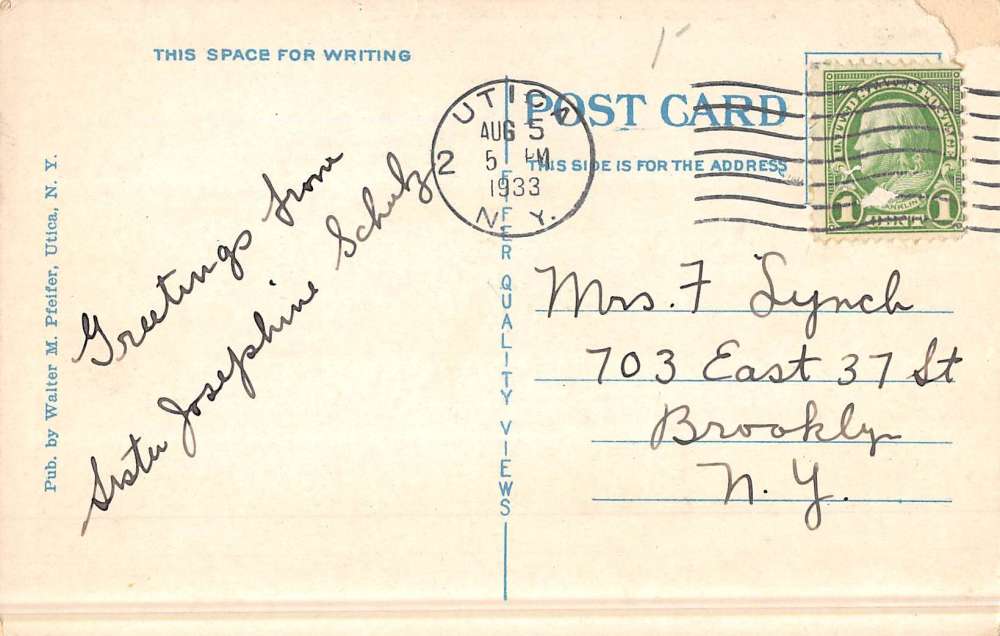 THIS SPACE FOR WRITING
POST CARD
THIS SIDE IS FOR THE ADDRESS
UTICA
AUG 5
5 PM
1933
N. Y.
2
UNITED STATES POSTAGE
FRANKLIN
1 1
Greetings from
Sister Josephine Schulz
Mrs. F Lynch
703 East 37 St
Brooklyn
N. Y.
Pub. by Walter M. Pfeifer, Utica, N. Y.
QUALITY VIEWS